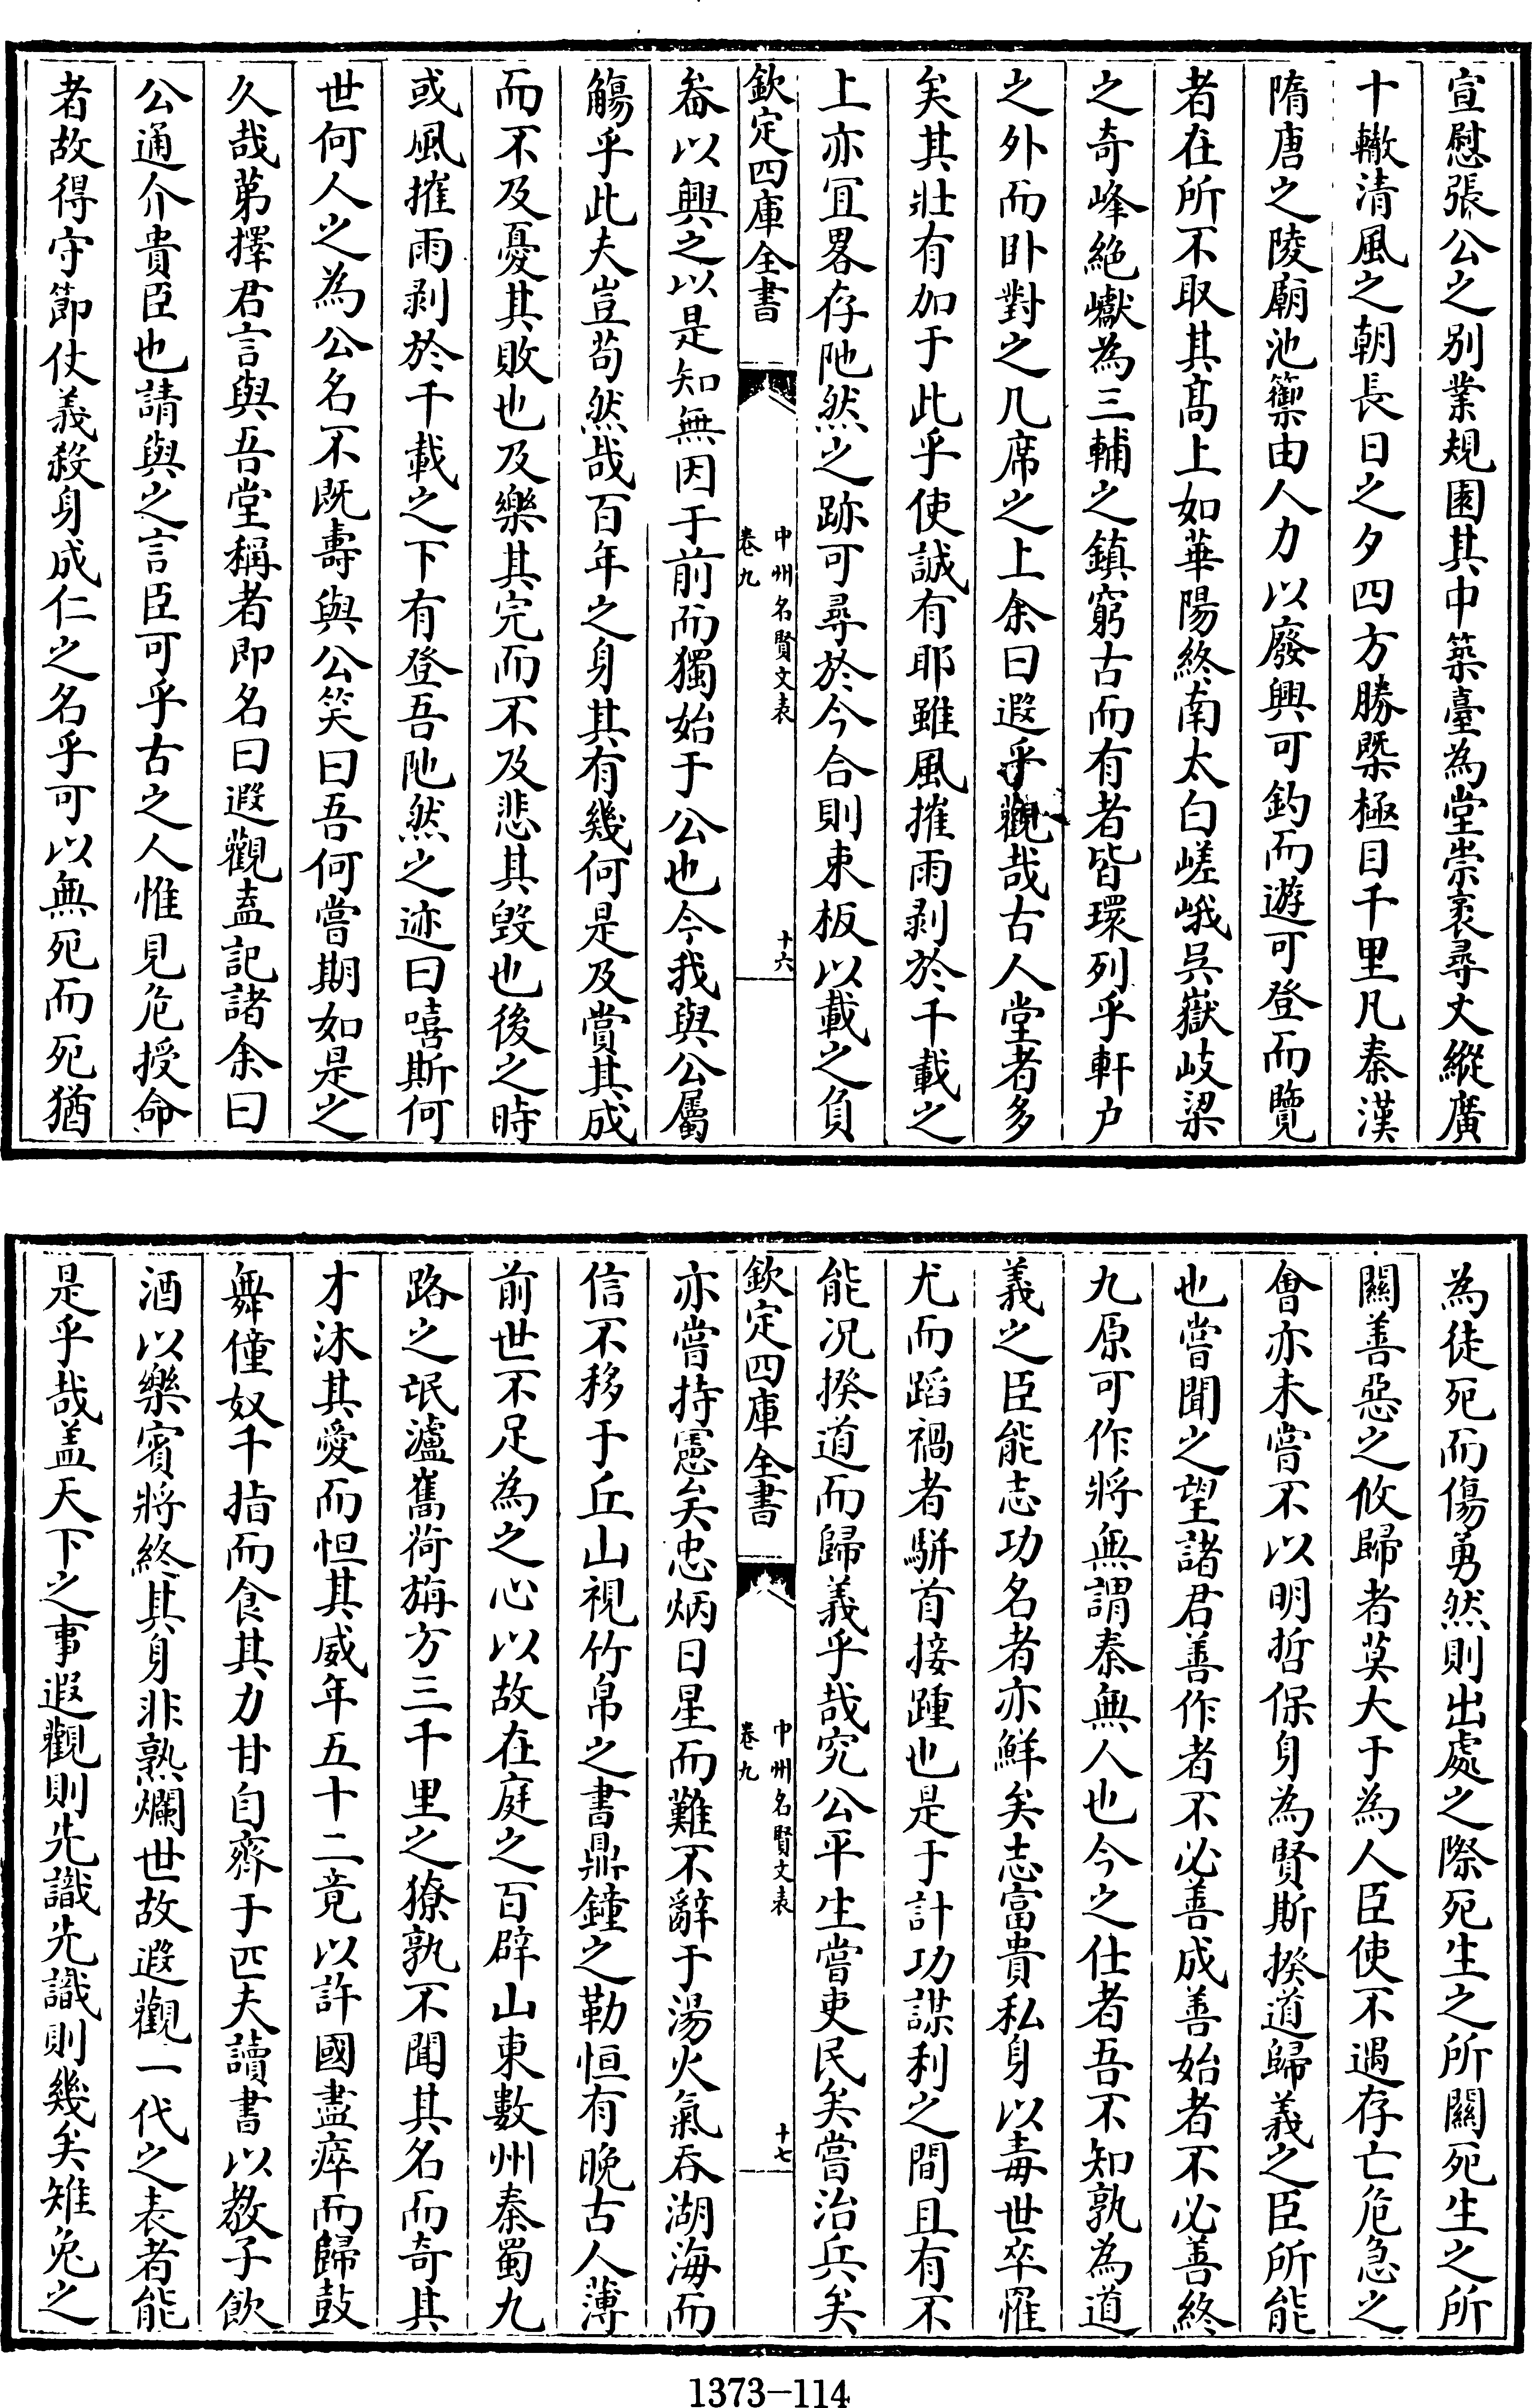 宣慰張公之别業規園其中築臺為堂崇袤尋丈縱廣
十轍清風之朝長日之夕四方勝槩極目千里凡秦漢
隋唐之陵廟池籞由人力以廢興可釣而遊可登而覽
者在所不取其髙上如華陽終南太白嵯峨吳嶽岐梁
之奇峰絶巘為三輔之鎮窮古而有者皆環列乎軒户
之外而卧對之几席之上余曰遐乎觀哉古人堂者多
矣其壯有加于此乎使誠有耶雖風摧雨剥於千載之
上亦冝畧存阤然之跡可尋於今合則束板以載之負
欽定四庫全書
中州名賢文表
卷九
十六
畚以興之以是知無因于前而獨始于公也今我與公屬
觴乎此夫豈苟然哉百年之身其有幾何是及賞其成
而不及憂其敗也及樂其完而不及悲其毀也後之時
或風摧雨剥於千載之下有登吾阤然之迹曰嘻斯何
世何人之為公名不既壽與公笑曰吾何嘗期如是之
久哉第擇君言與吾堂稱者即名曰遐觀盍記諸余曰
公通介貴臣也請與之言臣可乎古之人惟見危授命
者故得守節仗義殺身成仁之名乎可以無死而死猶
為徒死而傷勇然則出處之際死生之所關死生之所
關善惡之攸歸者莫大于為人臣使不遇存亡危急之
會亦未嘗不以明哲保身為賢斯揆道歸義之臣所能
也嘗聞之望諸君善作者不必善成善始者不必善終
九原可作將無謂秦無人也今之仕者吾不知孰為道
義之臣能志功名者亦鮮矣志富貴私身以毒世卒罹
尤而蹈禍者駢首接踵也是于計功謀利之間且有不
能况揆道而歸義乎哉究公平生嘗吏民矣嘗治兵矣
欽定四庫全書
中州名賢文表
卷九
十七
亦嘗持憲矣忠炳日星而難不辭于湯火氣吞湖海而
信不移于丘山視竹帛之書鼎鐘之勒恒有晚古人薄
前世不足為之心以故在庭之百辟山東數州秦蜀九
路之氓瀘舊荷旃方三千里之獠孰不聞其名而奇其
才沐其愛而怛其威年五十二竟以許國盡瘁而歸鼓
舞僮奴千指而食其力甘自齊于匹夫讀書以教子飲
酒以樂賓將終其身非熟爛世故遐觀一代之表者能
是乎哉盖天下之事遐觀則先識先識則幾矣雉兔之
1373-114